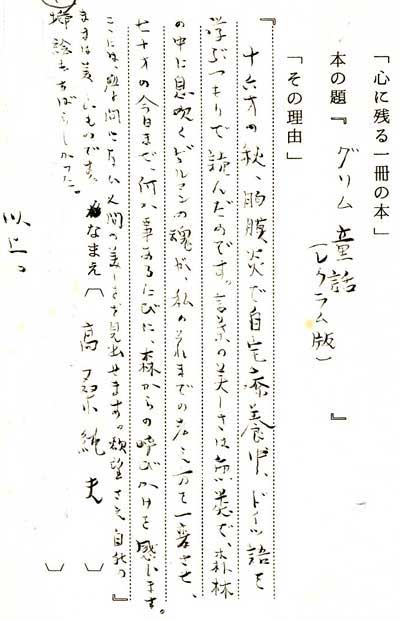 「心に残る一冊の本」
本の題『 グリム童話 』
(レクラム版)
「その理由」
『 十六才の秋、肋膜炎で自宅療養中、ドイツ語を
学ぶつもりで読んだものです。言葉の美しさは無類で、森林
の中に息吹くゲルマンの魂が、私のそれまでの考え方を一変させ、
七十才の今日まで、何か事あるたびに、森からの呼びかけを感じます。
ここには 人間の美しさを見出せます。欲望さえ自然の
ままは美しいものです。
挿絵もすばらしかった。 』
なまえ〔 高桑純夫 〕
以上。